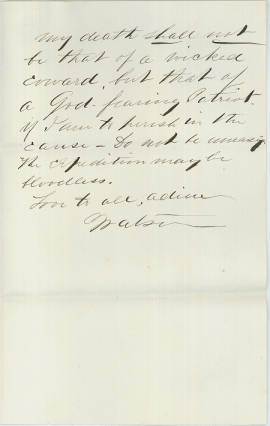 My death shall not
be that of a wicked
coward, but that of
a God-fearing Patriot.
If I am to perish in the
cause - Do not be uneasy
The expedition may be
bloodless.
Love to all, adieu
Watson